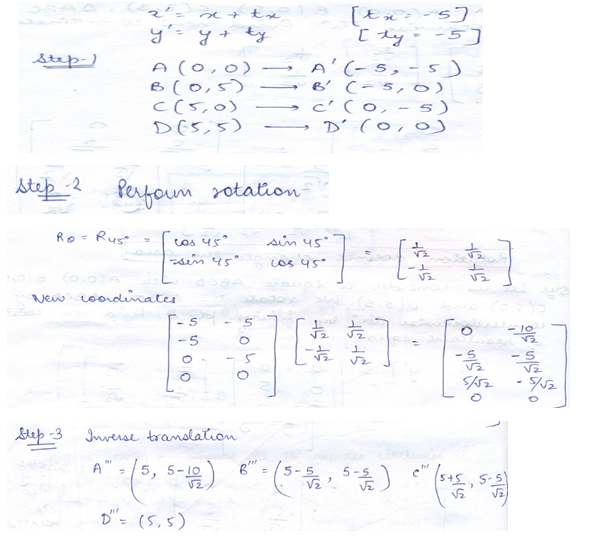 x' = x + tx [tx = -5]
y' = y + ty [ty = -5]
Step-1
A (0,0) → A' (-5, -5)
B (0,5) → B' (-5, 0)
C (5,0) → C' (0, -5)
D (5,5) → D' (0, 0)
Step-2 Perform rotation
Rθ = R45° = [cos 45° sin 45°] = [1/√2 1/√2]
[-sin 45° cos 45°] [-1/√2 1/√2]
New coordinates
[-5 -5] [1/√2 1/√2] = [0 -10/√2]
[-5 0] [-1/√2 1/√2] [-5/√2 -5/√2]
[0 -5] [5/√2 -5/√2]
[0 0] [0 0]
Step-3 Inverse translation
A''' = (5, 5-10/√2) B''' = (5-5/√2, 5-5/√2) C''' (5+5/√2, 5-5/√2)
D''' = (5,5)